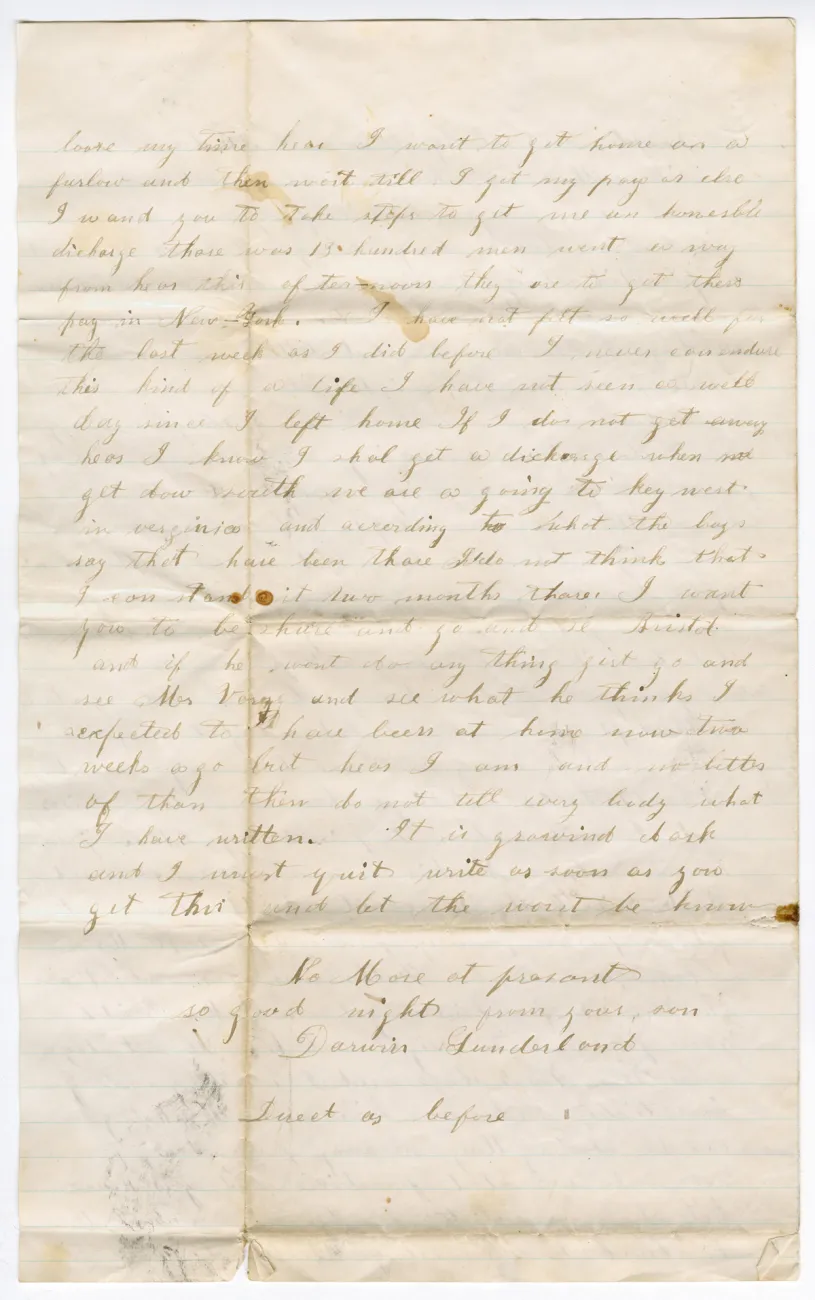 loose my time hear I want to get home on a
furlow and then wait till I get my pay or else
I wand you to take steps to get me an honerble
dicharge thare was 13 hundred men went a way
from hear this after-noon they are to get there
pay in New-York. I have not felt so well for
the last week as I did before I never can endure
this kind of a life I have not seen a well
day since I left home If I do not get away
hear I know I shal get a dicharge when we
get dow south we are a going to key west
in verginia and acording to what the boys
say that have been thare I do not think that
I can stand it two months thare. I want
you to be shure and go and se Aristol
and if he wont do any thing girt go and
see Mr and see what he thinks I
expected to have been at home now two
weeks ago but hear I am and no better
of than then do not tell every body what
I have written. It is growind dark
and I must quit write as soon as you
get this and let the worst be know
No More at presant
so good night from your son
Darwin Sunderland
Direct as before